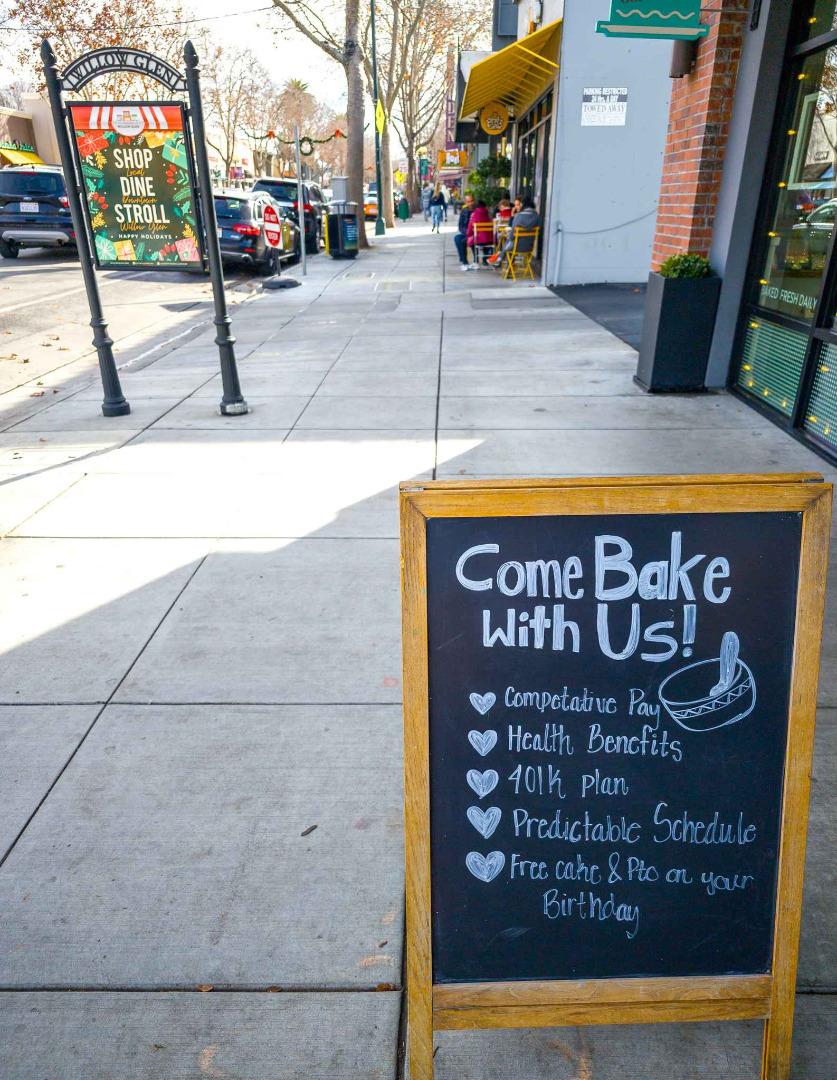 WILLOW GLEN
WILLOW GLEN
SHOP
Local
DINE
Downtown
STROLL
Willow Glen
HAPPY HOLIDAYS
DO NOT
PARKING RESTRICTED
24 Hrs. A DAY
TOWED AWAY
BAKED FRESH DAILY
Come Bake
With Us!
Competative Pay
Health Benefits
401k plan
Predictable Schedule
Free cake & Pto on your
Birthday